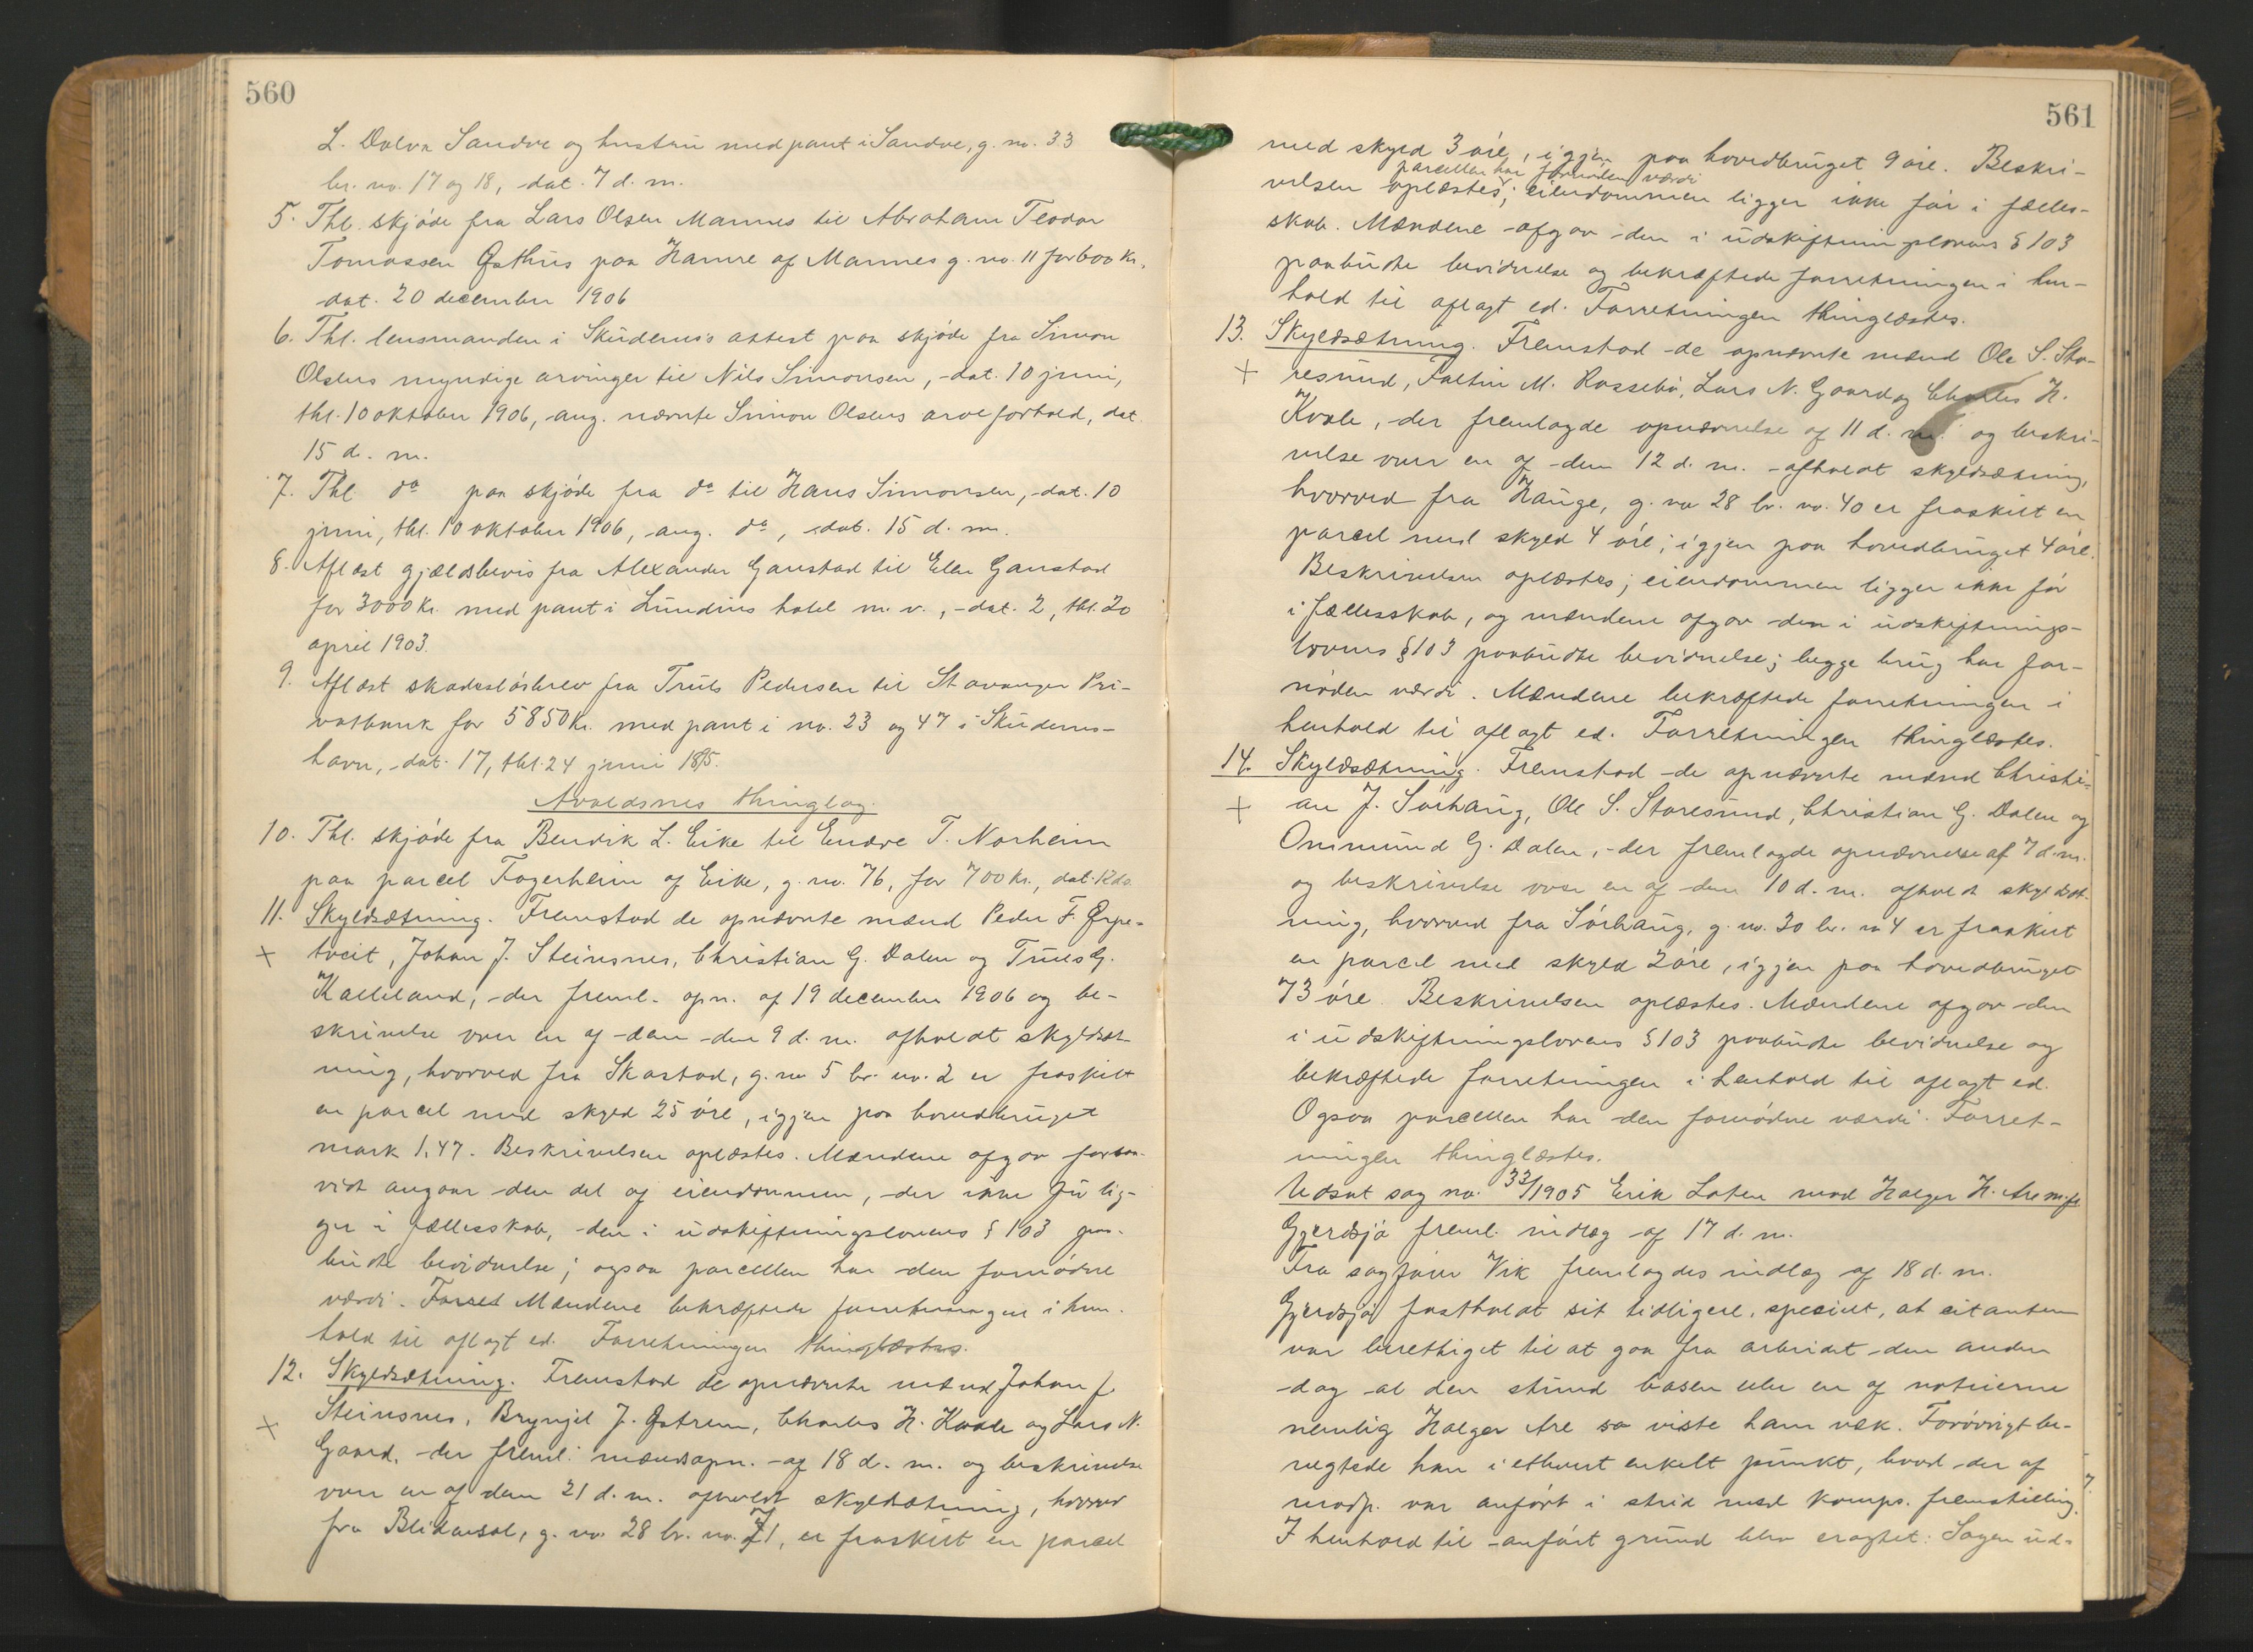 560
L. Dalva Sandve og hustru med pant i Sandve, g. no. 33
br. no. 17 og 18, dat. 7 d. m.
5. Thl. skjöde fra Lars Olsen Mannes til Abraham Teodor
Tomassen Østhus paa Hamre af Mannes g. no. 11 for 600 kr.,
dat. 20 december 1906
6. Thl. lensmanden i Skudenes's attest paa skjöde fra Simon
Olsens myndige arvinger til Nils Simonsen, dat. 10 juni,
thl. 10 oktober 1906, ang. nævnte Simon Olsens arveforhold, dat.
15 d. m.
7. Thl do paa skjöde fra do til Hans Simonsen, dat. 10
juni, thl. 10 oktober 1906, ang. do, dat. 15 d. m.
8. Aflæst gjældsbevis fra Alexander Ganstad til Elen Ganstad
for 3000 kr. med pant i Lundins hotel m. v., dat. 2, thl. 20
april 1903.
9. Aflæst skadeslösbrev fra Truls Pedersen til Stavanger Pri-
vatbank for 5850 kr. med pant i no. 23 og 47 i Skudenes-
havn, dat. 17, thl. 24 juni
Avaldsnes thinglag.
10. Thl. skjöde fra Bendik L. Eike til Endre T. Norheim
paa parcel Fagerheim af Eike, g. no. 76, for 700 kr., dat.
11. Skyldsætning. Fremstod de opnævnte mænd Peder F. Ørpe-
+ tveit, Johan J. Steinsnes, Christian G. Dalen og Truls G.
Kalleland, der freml. opn. af 19 december 1906 og be-
skrivelse over en af dem den 9 d. m. afholdt skyldsæt-
ning, hvorved fra Skastad, g. no 5 br. no. 2 er fraskilt
en parcel med skyld 25 öre, igjen paa hovedbruget
mark 1,47. Beskrivelsen oplæstes. Mændene afgav forsaa-
vidt angaar den del af eiendommen, der ikke för lig-
ger i fællesskab, den i udskiftningslovens § 103 paa-
budte bevidnelse; ogsaa parcellen har den fornödne
værdi. Forret Mændene bekræftede forretningen i hen-
hold til aflagt ed. Forretningen thinglæstes.
12. Skyldsætning. Fremstod de opnævnte mænd Johan J.
+ Steinsnes, Brynjel J. Østrem, Charles H. Kvale og Lars N.
Gaard, der freml. mændsopn. af 18 d. m. og beskrivelse
over en af dem 21 d. m. afholdt skyldsætning, hvorved
fra Blikensol, g. no. 28 br. no. 71, er fraskilt en parcel
561
med skyld 3 öre, igjen paa hovedbruget 9 öre. Beskri-
parcellen har fornöden værdi
velsen oplæstes; eiendommen ligger ikke för i fælles-
skab. Mændene afgav den i udskiftningslovens § 103
paabudte bevidnelse og bekræftede forretningen i hen-
hold til aflagt ed. Forretningen thinglæstes.
13. Skyldsætning. Fremstod de opnævnte mænd Ole S. Sto-
+ resund, Faltin M. Rossebö, Lars N. Gaard og Charles H.
Kvale, der fremlagde opnævnelse af 11 d. m. og beskri-
velse over en af dem 12 d. m. afholdt skyldsætning,
hvorved fra Hauge, g. no 28 br. no. 40 er fraskilt en
parcel med skyld 4 öre; igjen paa hovedbruget 4 öre.
Beskrivelsen oplæstes; eiendommen ligger ikke för
i fællesskab, og mændene afgav den i udskiftnings-
lovens § 103 paabudte bevidnelse; begge brug har for-
nöden værdi. Mændene bekræftede forretningen i
henhold til aflagt ed. Forretningen thinglæstes.
14. Skyldsætning. Fremstod de opnævnte mænd Christi-
+ an J. Sörhaug, Ole S. Storesund, Christian G. Dalen og
Ommund G. Dalen, der fremlagde opnævnelse af 7 d. m.
og beskrivelse over en af dem 10 d. m. afholdt skyldsæt-
ning, hvorved fra Sörhaug, g. no. 30 br. no 4 er fraskilt
en parcel med skyld 2 öre, igjen paa hovedbruget
73 öre. Beskrivelsen oplæstes. Mændene afgav den
i udskiftningslovens § 103 paabudte bevidnelse og
bekræftede forretningen i henhold til aflagt ed.
Ogsaa parcellen har den fornödne værdi. Forret-
ningen thinglæstes.
Udsat sag no. 33/1905 Erik Loten mod Holger H. Are m. fl
Gjerdsjö freml. indlæg af 17 d. m.
Fra sagförer Vik fremlagdes indlæg af 18 d. m.
Gjerdsjö fastholdt sit tidligere, specielt, at citanten
var berettiget til at gaa fra arbeidet den anden
dag al den stund basen eller en af noteierne
nemlig Holger Are so viste ham væk. Forövrigt be-
negtede han i ethvert enkelt punkt, hvad der af
modp. var anfört i strid med komps. fremstilling.
I henhold til anfört grund blev eragtet: Sagen ud-